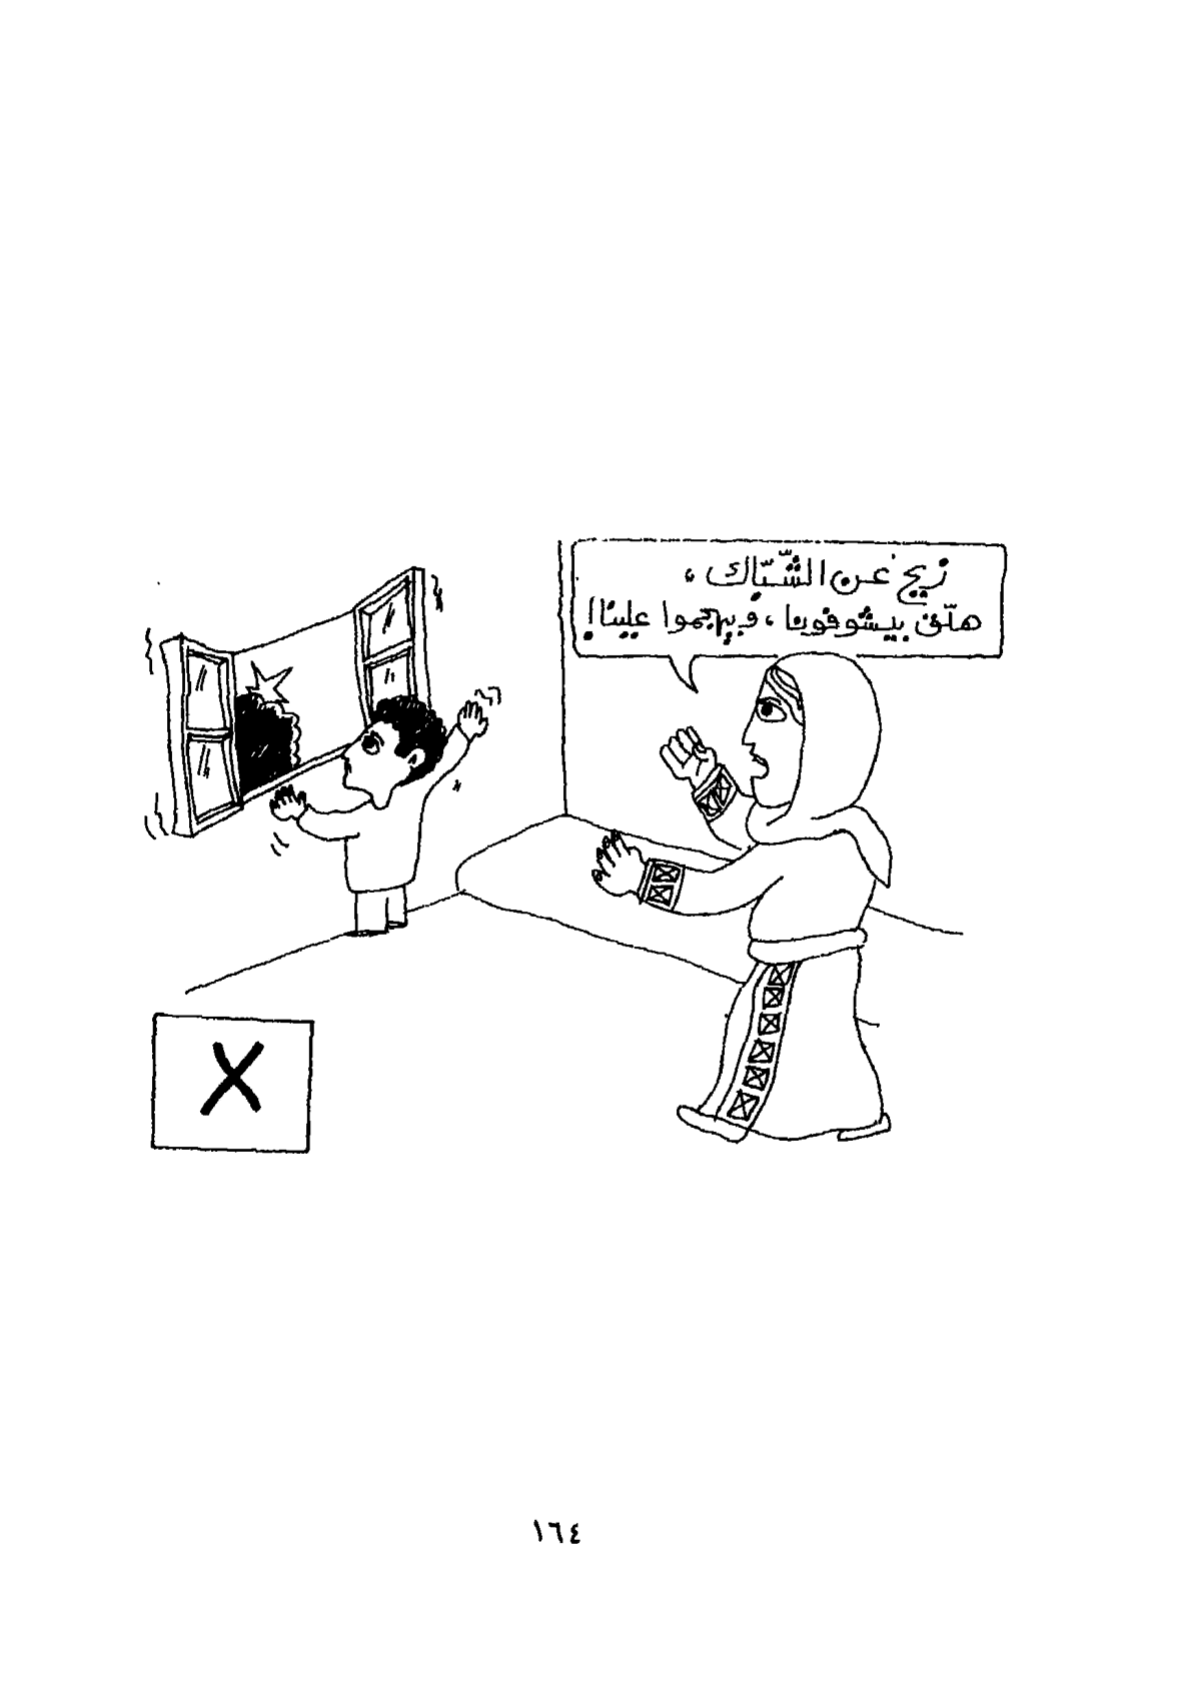 زيح عن الشّبّاك،
هلّق بيشوفونا، وبيهجموا علينا!
X
١٦٤